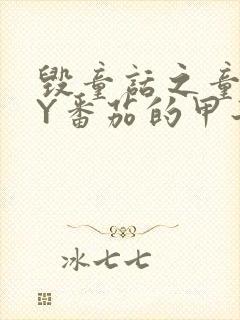 毁童话之童
Y番茄的甲
冰七七